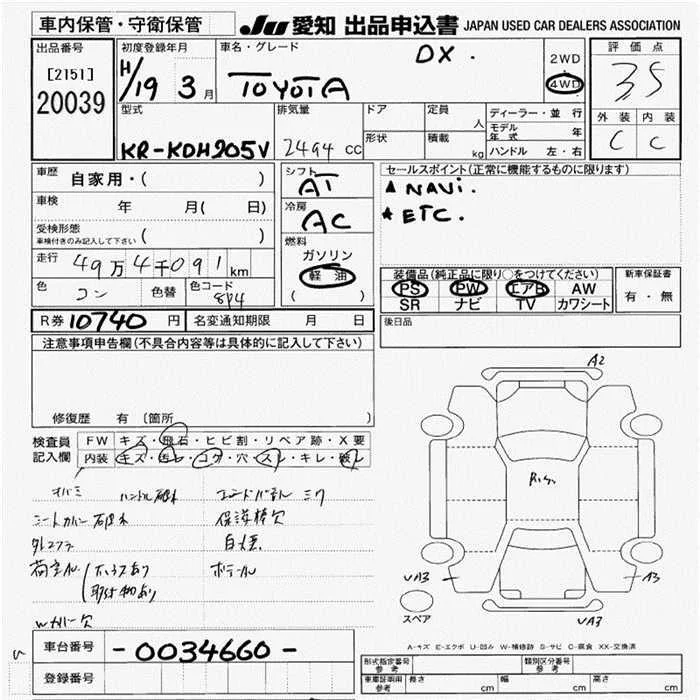 車内保管・守衛保管
JU 愛知 出品申込書 JAPAN USED CAR DEALERS ASSOCIATION
出品番号
[2151]
20039
初度登録年月
H/19 3月
車名・グレード
DX.
TOYOTA
2WD
4WD
評価点
3.5
外装 内装
C C
型式
KR-KDH205V
排気量
2494 CC
ドア
形状
定員
人
積載
kg
ディーラー・並行
モデル年式 年
ハンドル 左・右
車歴 自家用・( )
車検 年 月( 日)
受検形態
車検付きのみ記入して下さい ( )
走行 49万4千091km
色 コン 色替 色コード 8P4
シフト
AT
冷房
AC
燃料
ガソリン
軽油
( )
セールスポイント(正常に機能するものに限ります)
▲ NAVi.
★ ETC.
装備品(純正品に限り○をつけてください)
PS PW エアB AW
SR ナビ TV カワシート
新車保証書
有・無
後日品
R券 10740 円 名変通知期限 月 日
注意事項申告欄(不具合内容等は具体的に記入して下さい)
修復歴 有 〔箇所
検査員記入欄
FW キズ・飛石・ヒビ割・リペア跡・X要
内装 キズ・汚レ・コゲ・穴・スレ・キレ・破レ
保護棒欠
Wカバー欠
A2
R.s.
UA3
A3
UA3
スペア
A-キズ E-エクボ U-凹み W-補修跡 S-サビ C-腐食 XX-交換済
車台番号 -0034660-
登録番号
形式指定番号
参考
類別区分番号
参考
車庫証明
参考
長さ cm 幅 cm 高さ cm